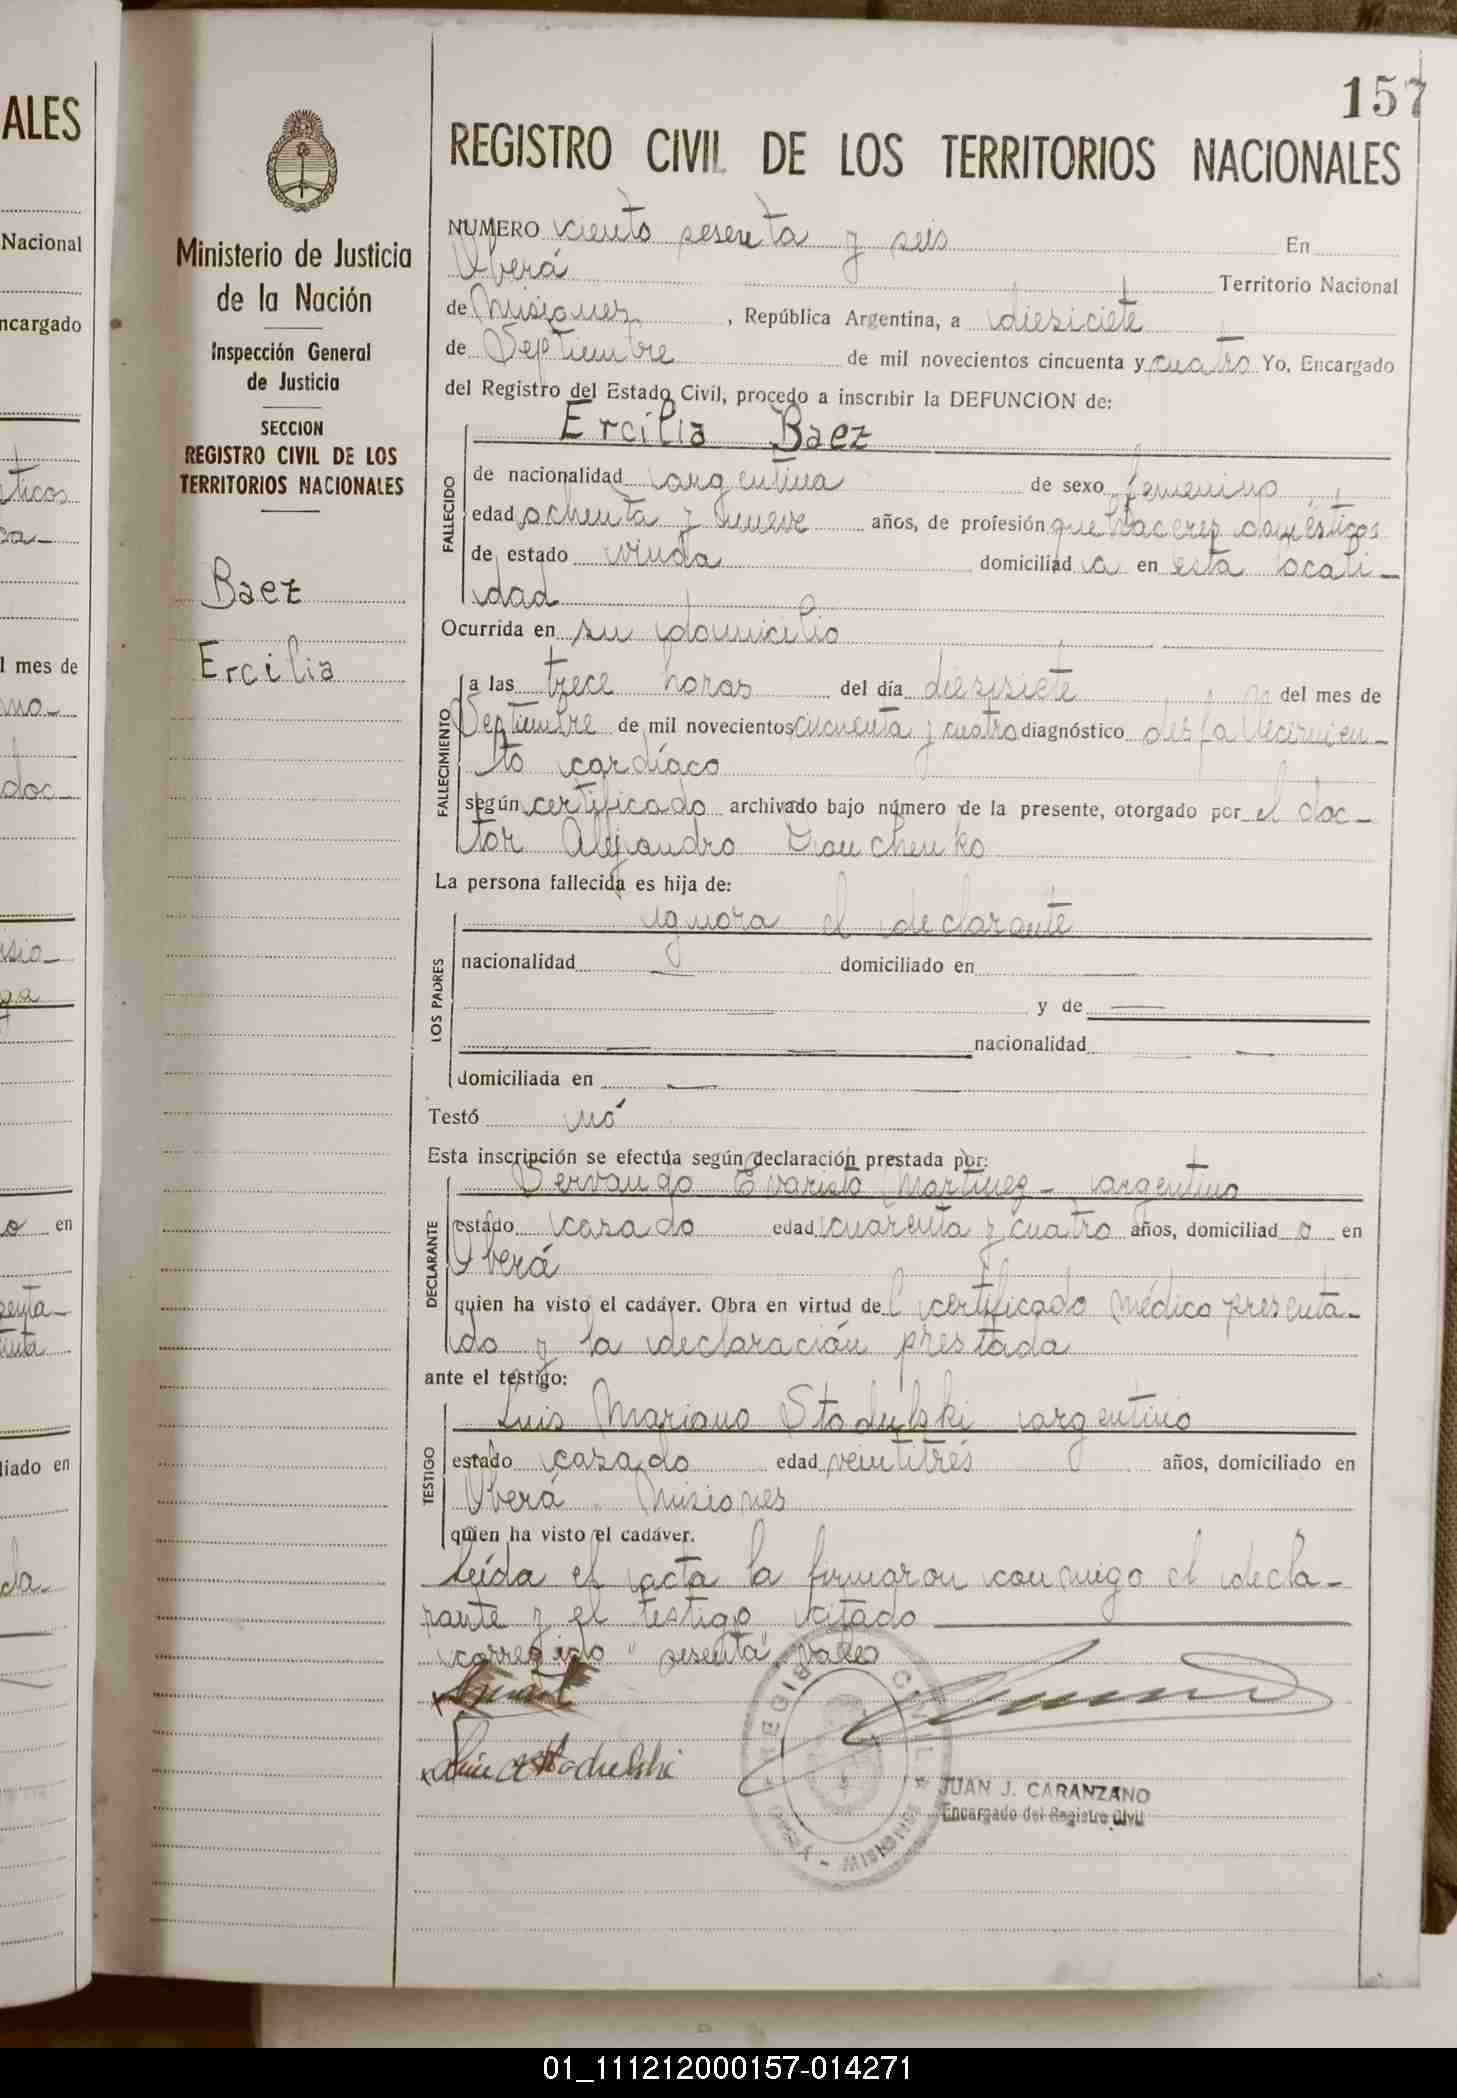 157
ALES
Nacional
ncargado
l mes de
doc-
en
liado en
Ministerio de Justicia
de la Nación
Inspección General
de Justicia
SECCION
REGISTRO CIVIL DE LOS
TERRITORIOS NACIONALES
Baez
Ercilia
REGISTRO CIVIL DE LOS TERRITORIOS NACIONALES
NUMERO ciento sesenta y seis En
Oberá Territorio Nacional
de Misiones, República Argentina, a diesiciete
de Septiembre de mil novecientos cincuenta y cuatro Yo, Encargado
del Registro del Estado Civil, procedo a inscribir la DEFUNCION de:
FALLECIDO
Ercilia Baez
de nacionalidad argentina de sexo femenino
edad ochenta y nueve años, de profesión que haceres domésticos
de estado viuda domiciliad a en esta locali-
dad
Ocurrida en su domicilio
FALLECIMIENTO
a las trece horas del día diesisiete del mes de
Septiembre de mil novecientos cincuenta y cuatro diagnóstico desfallecimien-
to cardíaco
según certificado archivado bajo número de la presente, otorgado por el doc-
tor Alejandro
La persona fallecida es hija de:
LOS PADRES
ignora el declarante
nacionalidad — domiciliado en —
— y de —
— — nacionalidad —
domiciliada en — —
Testó nó
Esta inscripción se efectúa según declaración prestada por:
DECLARANTE
Servando Evaristo Martinez - argentino
estado casado edad cuarenta y cuatro años, domiciliad o en
Oberá
quien ha visto el cadáver. Obra en virtud del certificado médico presenta-
do y la declaración prestada
ante el testigo:
TESTIGO
Luis Mariano Stodulski argentino
estado casado edad veintitrés años, domiciliado en
Oberá Misiones
quien ha visto el cadáver.
Leída el acta la firmaron conmigo el decla-
rante y el testigo citado
corregido "sesenta", vale
REGISTRO CIVIL
MISIONES
JUAN J. CARANZANO
Encargado del Registro Civil
01_111212000157-014271